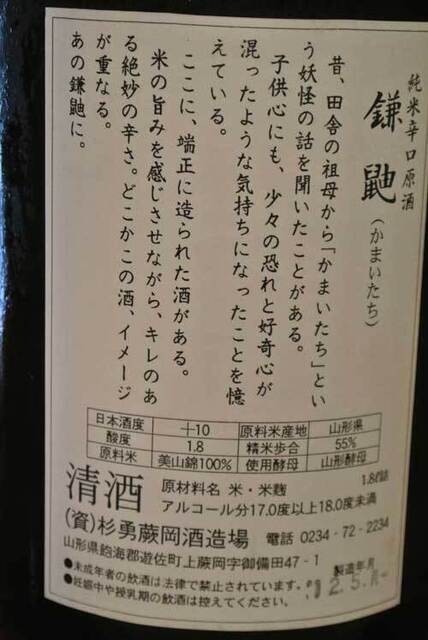 純米辛口原酒
鎌鼬(かまいたち)
昔、田舎の祖母から「かまいたち」とい
う妖怪の話を聞いたことがある。
子供心にも、少々の恐れと好奇心が
混ったような気持ちになったことを憶
えている。
ここに、端正に造られた酒がある。
米の旨みを感じさせながら、キレのあ
る絶妙の辛さ。どこかこの酒、イメージ
が重なる。
あの鎌鼬に。
日本酒度 +10 原料米産地 山形県
酸度 1.8 精米歩合 55%
原料米 美山錦100% 使用酵母 山形酵母
清酒
原材料名 米・米麹 1.8ℓ詰
アルコール分17.0度以上18.0度未満
(資)杉勇蕨岡酒造場 電話 0234-72-2234
山形県飽海郡遊佐町上蕨岡字御備田47-1
●未成年者の飲酒は法律で禁止されています。
●妊娠中や授乳期の飲酒は控えてください。
製造年月
12.5.